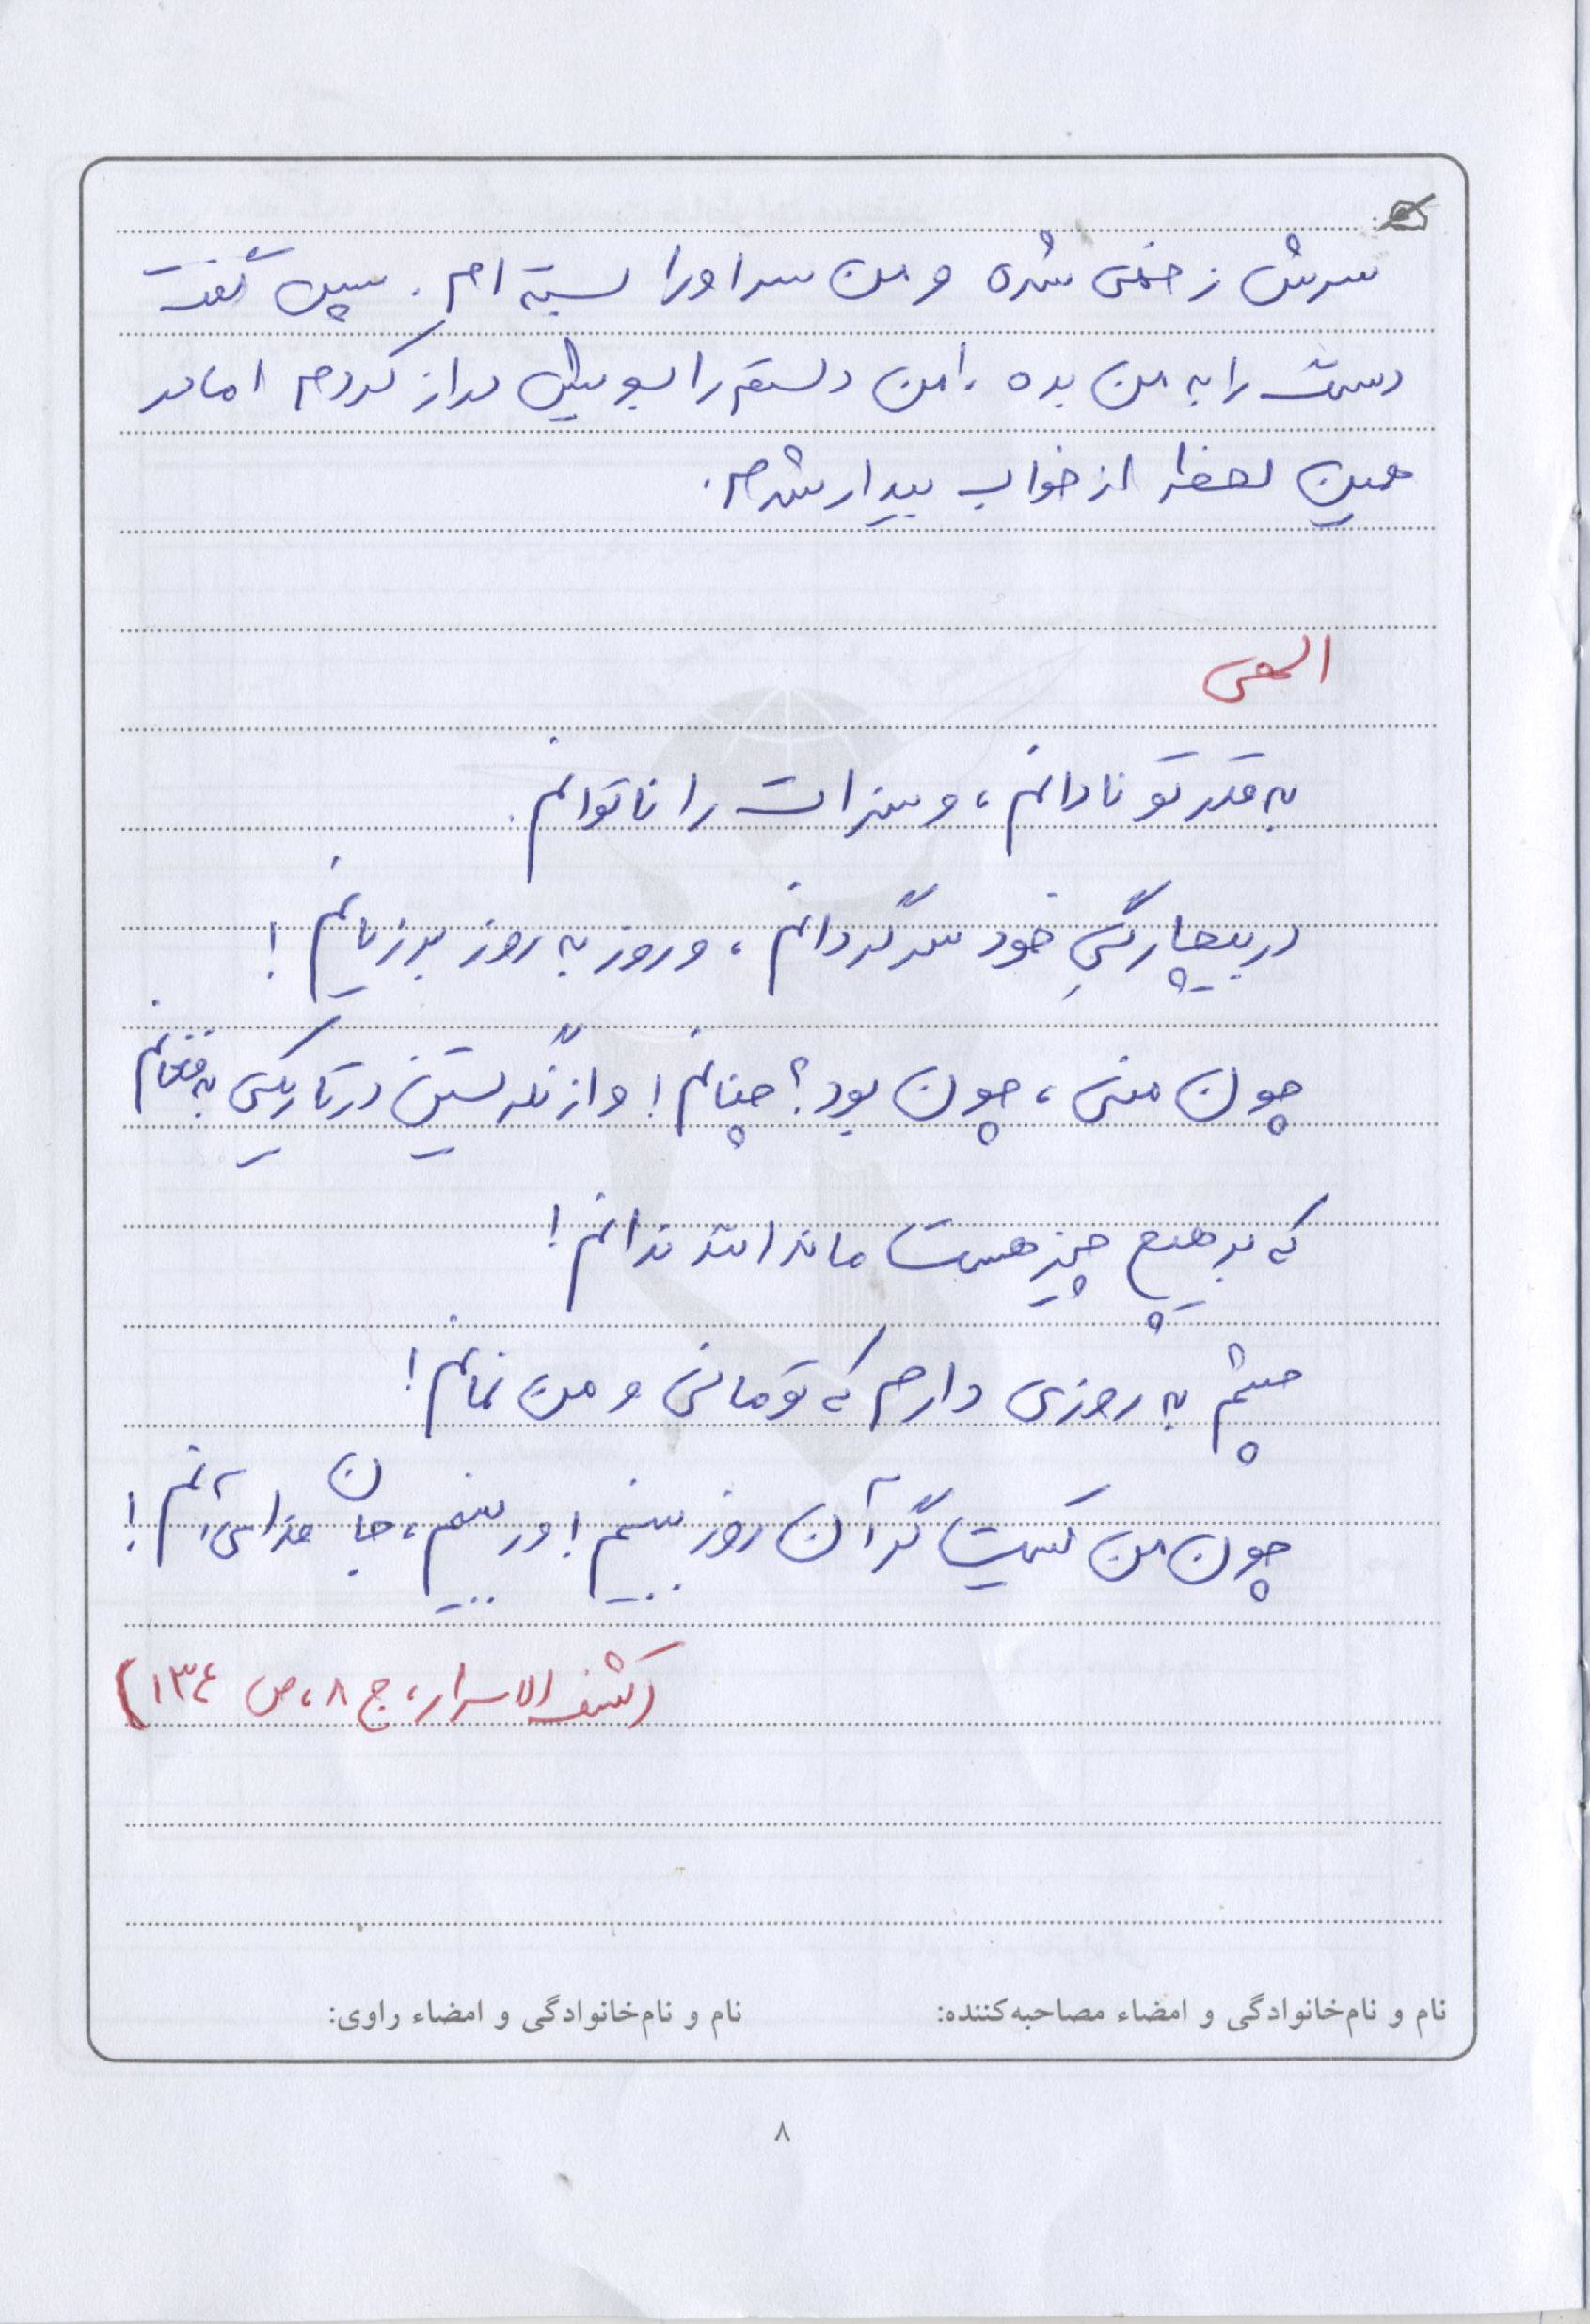 سرش زخمی شده و من سر او را بسته ام. سپس گفت
دستت را به من بده، من دستم را بسویش دراز کردم اما در
همین لحظه از خواب بیدار شدم.
الهی
به قدر تو نادانم، و سزات را ناتوانم.
در بیچارگیِ خود سرگردانم، و روز به روز بر زیانم!
چون منی، چون بود؟ چنانم! و از نگریستن در تاریکی به فغانم
که بر هیچ چیز هست ماندانند ندانم!
چشم به روزی دارم که تو مانی و من نمانم!
چون من کیست گر آن روز ببینم! ور ببینم، جان فدای آنم!
(کشف الاسرار، ج ۸، ص ۱۳۴)
نام و نام‌خانوادگی و امضاء مصاحبه‌کننده: نام و نام‌خانوادگی و امضاء راوی:
۸